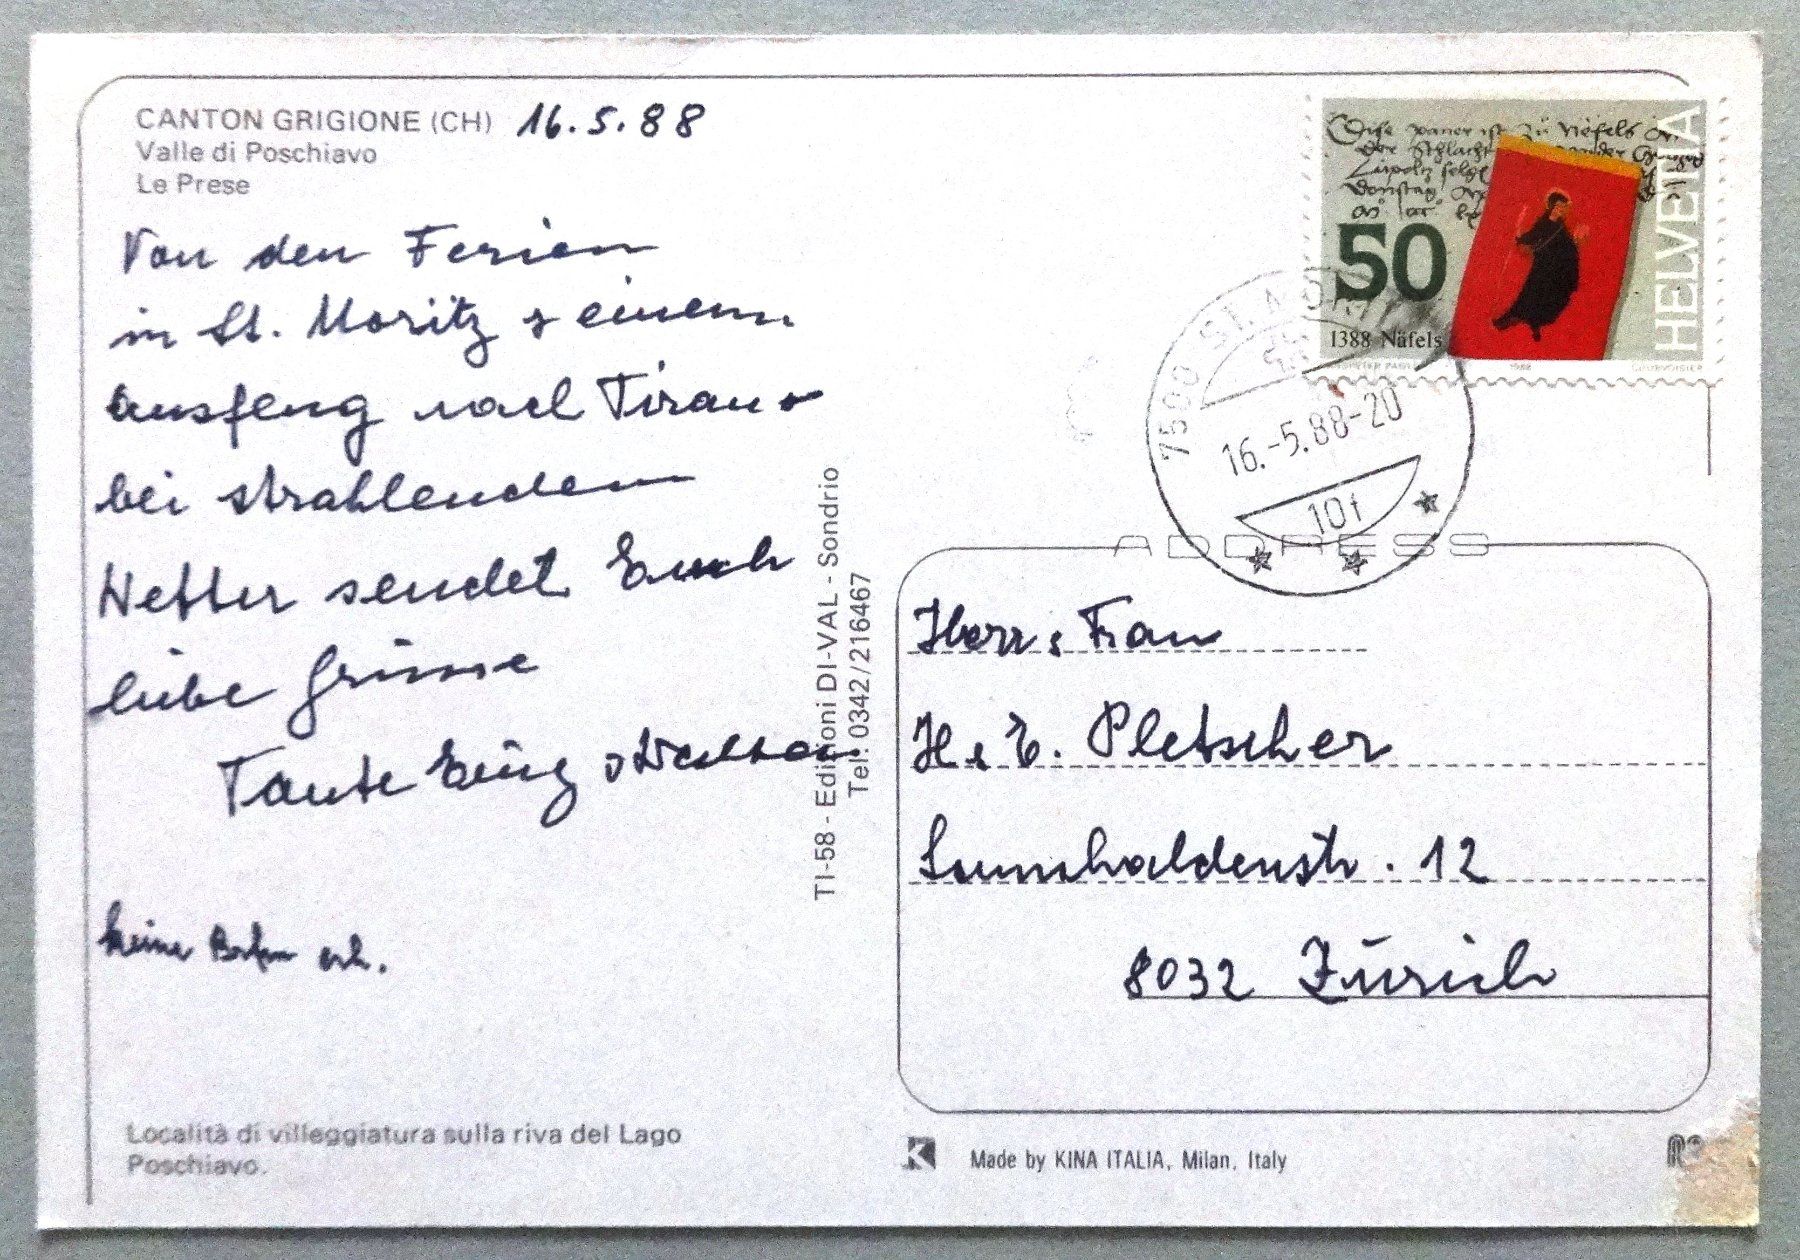 CANTON GRIGIONE (CH) 16.5.88
Valle di Poschiavo
Le Prese
Von den Ferien
in St. Moritz & einem
Ausfeug nach Tirano
bei strahlendem
Wetter sendet Euch
liebe Grüsse
Tante
keine
Località di villeggiatura sulla riva del Lago
Poschiavo.
TI-58 - Edizioni DI-VAL - Sondrio
Tel. 0342/216467
50
1388 Näfels
HELVETIA
7500 ST. MORITZ
16.-5.88-20
ADDRESS
Herr & Frau
H & E. Pletscher
Sunnhaldenstr. 12
8032 Zürich
K Made by KINA ITALIA, Milan, Italy